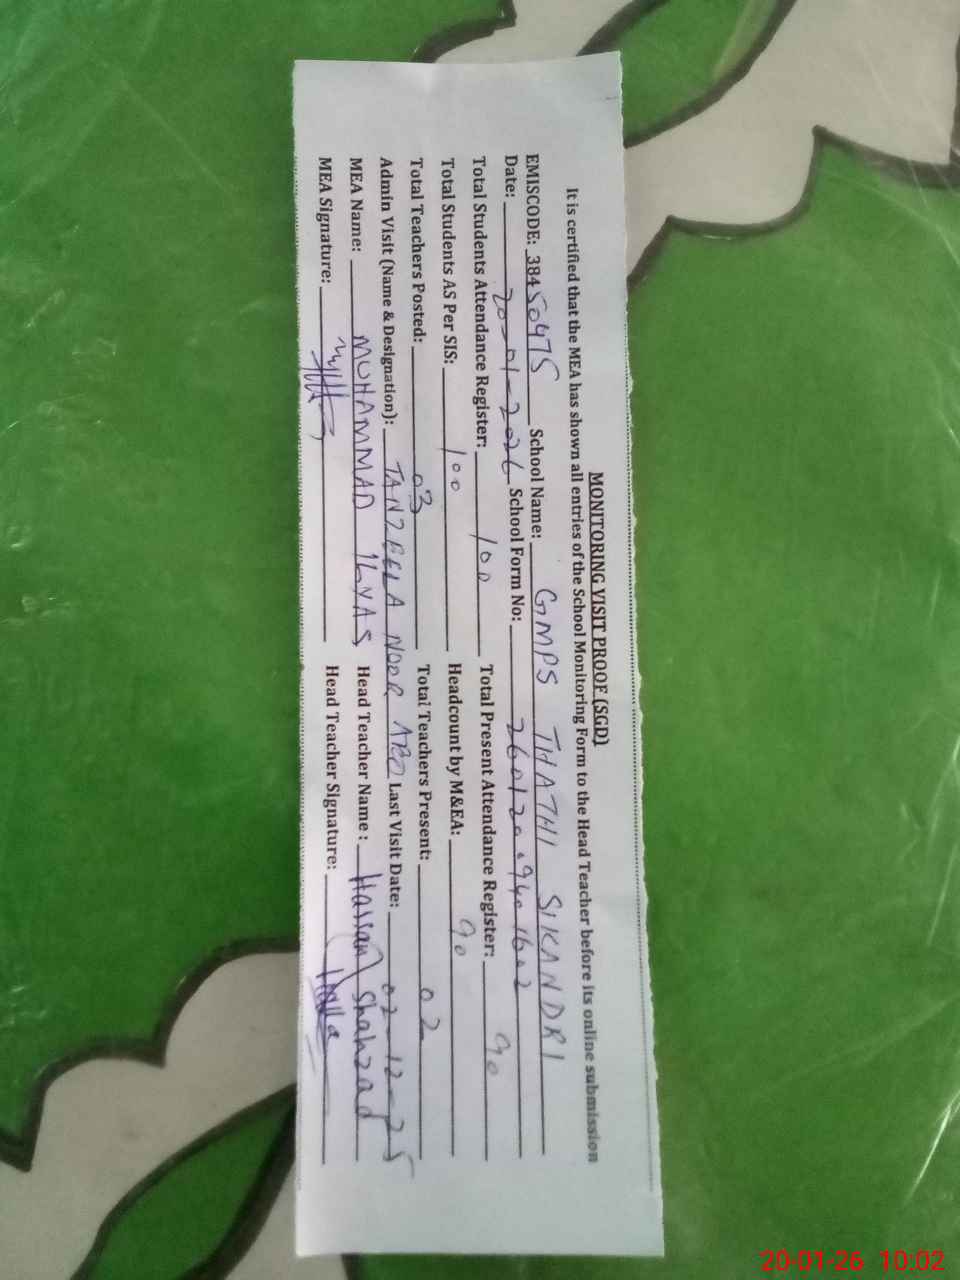 MONITORING VISIT PROOF (SGD)
It is certified that the MEA has shown all entries of the School Monitoring Form to the Head Teacher before its online submission
EMISCODE: 38450475 School Name: GMPS THATHI SIKANDRI
Date: 20-01-2026 School Form No: 26012009401602
Total Students Attendance Register: 100 Total Present Attendance Register: 90
Total Students AS Per SIS: 100 Headcount by M&EA: 90
Total Teachers Posted: 03 Total Teachers Present: 02
Admin Visit (Name & Designation): TANZEELA NOOR Last Visit Date: 02-12-25
MEA Name: MUHAMMAD ILYAS Head Teacher Name : Hassan Shahzad
MEA Signature: Head Teacher Signature:
20-01-26 10:02